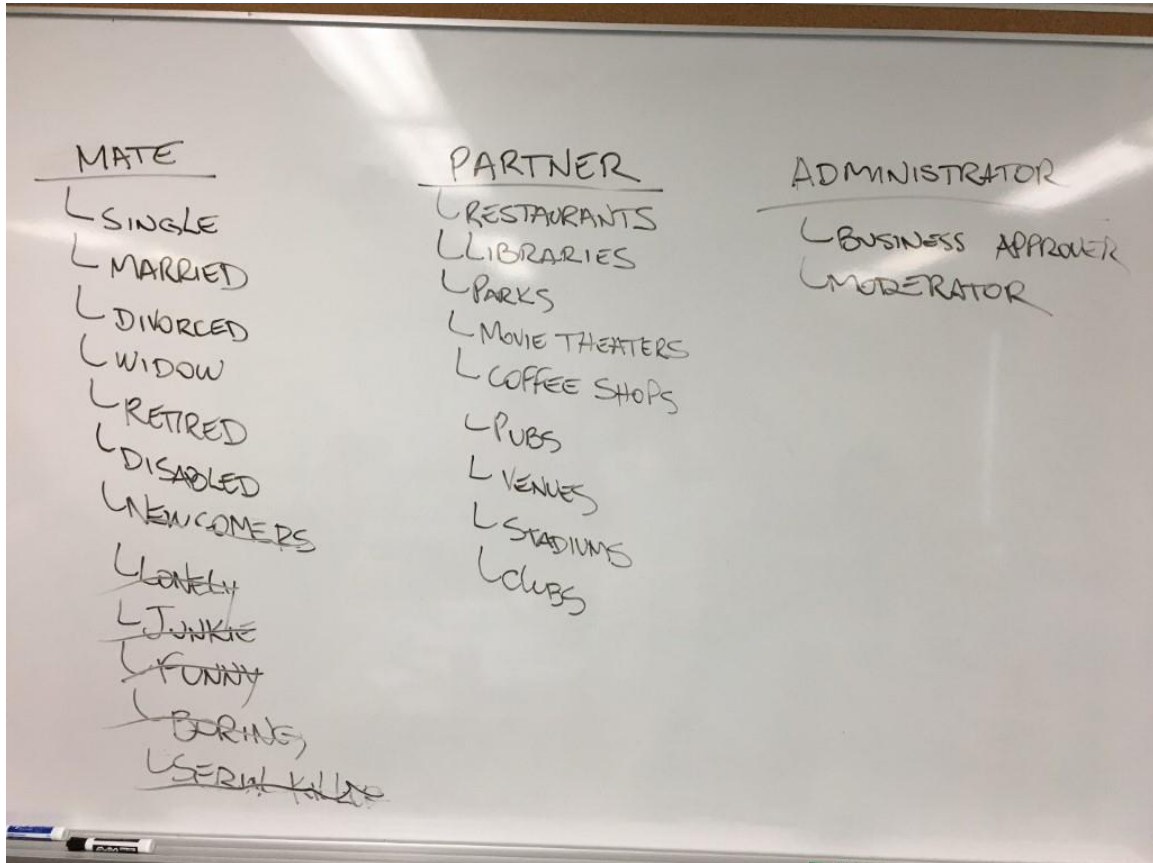 MATE
SINGLE
MARRIED
DIVORCED
WIDOW
RETIRED
DISABLED
NEWCOMERS
LONELY
JUNKIE
FUNNY
BORING
SERIAL KILLER
PARTNER
RESTAURANTS
LIBRARIES
PARKS
MOVIE THEATERS
COFFEE SHOPS
PUBS
VENUES
STADIUMS
CLUBS
ADMINISTRATOR
BUSINESS APPROVER
MODERATOR